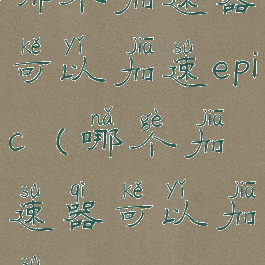 kě yǐ jiā sù
可以加速epi
nǎ gè jiā
c（哪个加
sù qì kě yǐ jiā
速器可以加
sù